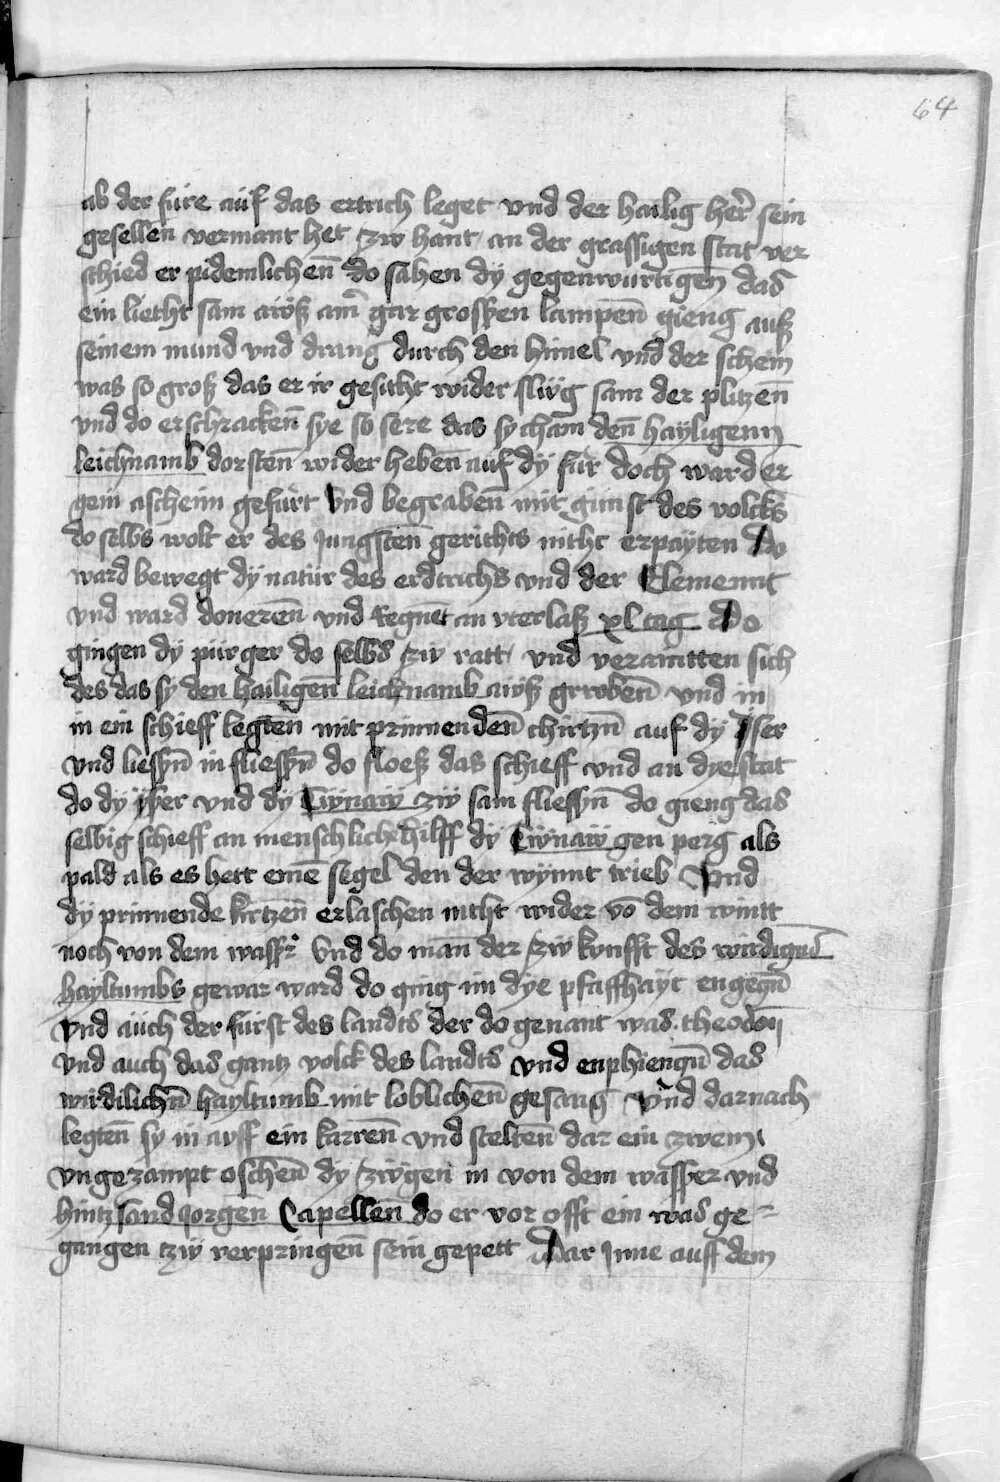 64
ab der füre aüf das ertrich leget vnd der hailig her̃ sein
gesellen vermant het zw hant an der grassigen stat ver
schied er pidemlichen̄ do sahen dÿ gegenwurtigen̄ das
ein liecht sam aüß am̄ gar grossen lampen̄ gieng auß
seinem mund vnd drang durch den himel vnd der schein
was so groß das er ir gesicht wider slüg sam der plitzen̄
vnd do erschracken̄ sye so sere das sy cham den̄ hayligenn
leichnamb dorsten̄ wider heben̄ auf dÿ für doch ward er
gein ascheim gefürt Vnd begraben̄ mit günst des volcks
do selbs wolt er des Jungsten̄ gerichts nicht erpayten Do
ward bewegt dÿ natür des erdtrichs vnd der Element
vnd ward doneren̄ vnd Regnet an vterlaß xl tag Do
gingen dÿ pürger do selbs zw ratt vnd verainten sich
des das sy den hailigen̄ leichnamb aüß gruben̄ vnd in
in ein schieff legten mit prinnenden̄ chirtzn̄ auf dÿ Iser
vnd liessn̄ in fliessn̄ do floeß das schieff vnd an dye stat
do dÿ yser vnd dÿ Tŵnaw zŵ sam fliessn̄ do gieng das
selbig schieff an menschlich hilff dÿ Tŵnaw gen perg als
pald als es hett eine̅ segel den der wynnt trieb Vnd
dÿ prinnende kirtzen̄ erlaschen nicht wider vo̅ dem wintt
noch von dem wasser Vnd do man der zŵ kunfft des wirdign̄
hayltumbs gewar ward do ging im dye pfaffhayt engegn̄
vnd aüch der fürst des landts der do genant was theodon
Vnd auch das gantz volck des landts vnd enphiengn̄ das
wirdilichn̄ hayltumb mit loblichen̄ gesang Vnd darnach
legten̄ sy in auff ein karren̄ vnd stelten̄ dar ein zwem
vngezampt ochsen̄ dy zŵgen in von dem wasser vnd
hintz sand Jorgen̄ Capellen̄ do er vor offt ein was ge⸗
gangen tzŵ verpringen̄ sein gepett Dar Inne auff dem